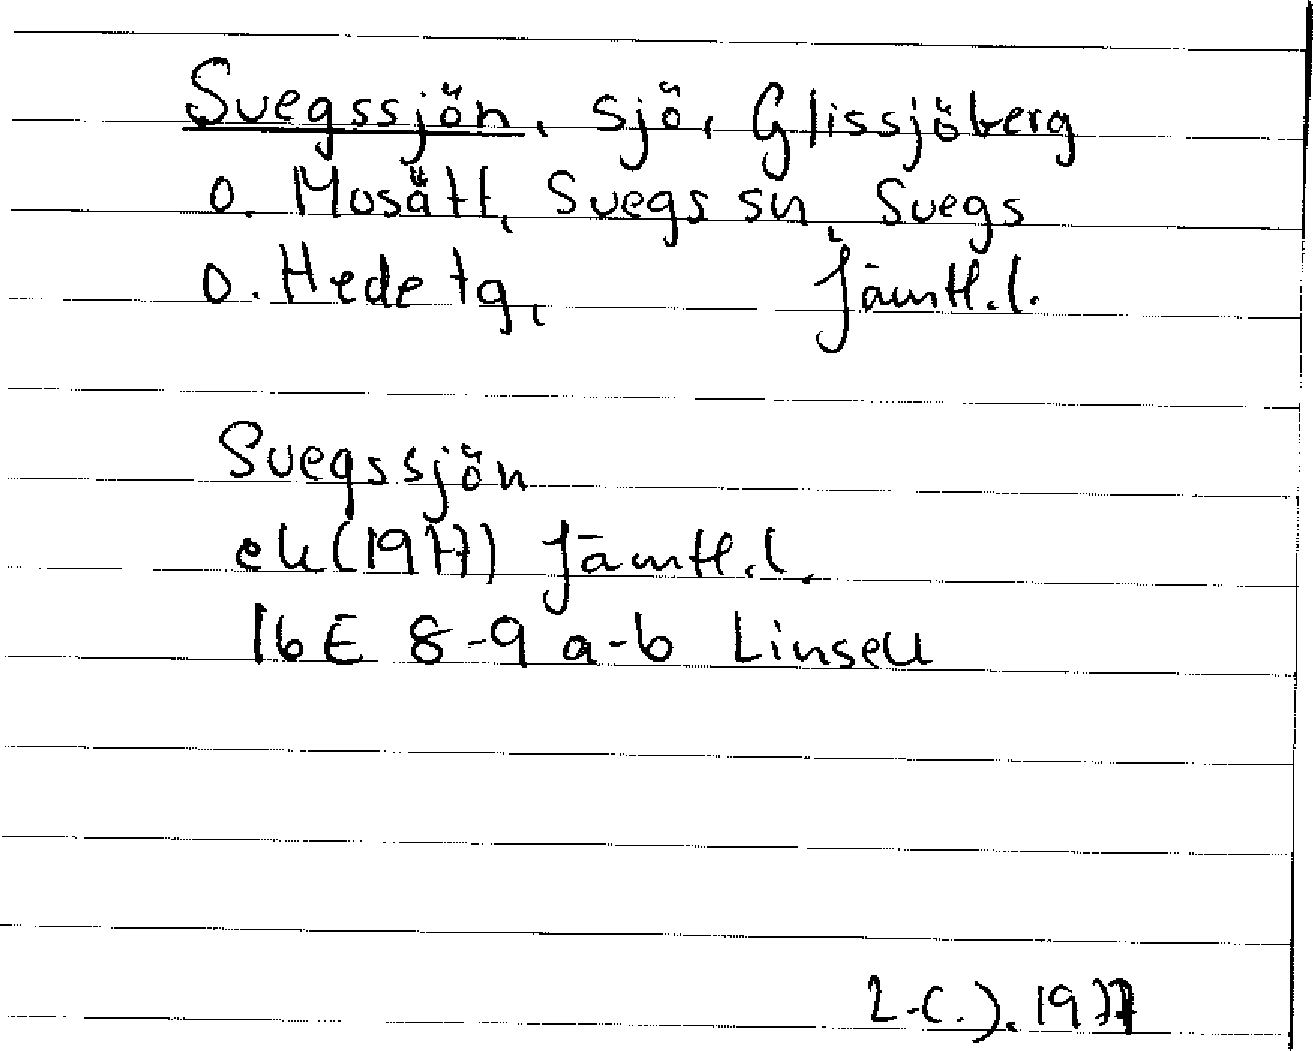 Svegssjön, sjö, Glissjöberg
o. Mosätt, Svegs sn, Svegs
o. Hede tg, Jämtl.l.
Svegssjön
ek (1977) Jämtl.l.
16 E 8-9 a-b Linsell
L-C.J. 1977